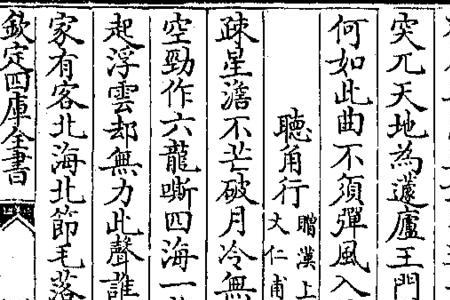 突兀天地為蘧廬王門
何如此曲不須彈風入
聽角行
贈漢上
文仁甫
疎星澹不芒破月冷無
空勁作六龍嘶四海一
起浮雲却無力此聲誰
家有客北海北節毛落
欽定四庫全書